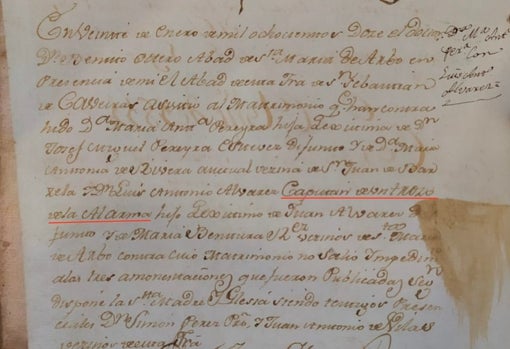 En Veinte de Enero de mil ochocientos Doze el
Dn Benito Ottero Abad de Sta Maria de Arbo en
Presencia de mi el Abad de esta fra de Sn Sebastian
de Caveiras asistio al Matrimonio q. han contra
hido Da Maria Anta Pereyra hija Lexitima de Dn
Josef Miguel Pereyra Estever difunto y de Da Maria
Antonia de Rivera actual vezina de Sn Juan de
y Dn Luis Antonio Alvarez Capitan de un trozo
de la Alarma hijo Lexitimo de Juan Alvarez di
funto y de Maria Bentura vecinos de Sta Maria
de Arbo contra cuio Matrimonio no salio Impedim
a las tres amonestaciones que fueron Publicadas segn
dispone la Sta Madre Yglesia siendo testigos Presen
Dn Simon Perez Pro, y Juan Antonio de Vilas
vezinos de esta fra
Da Ma Anta
Perra con
Luis Anto
Alvarez